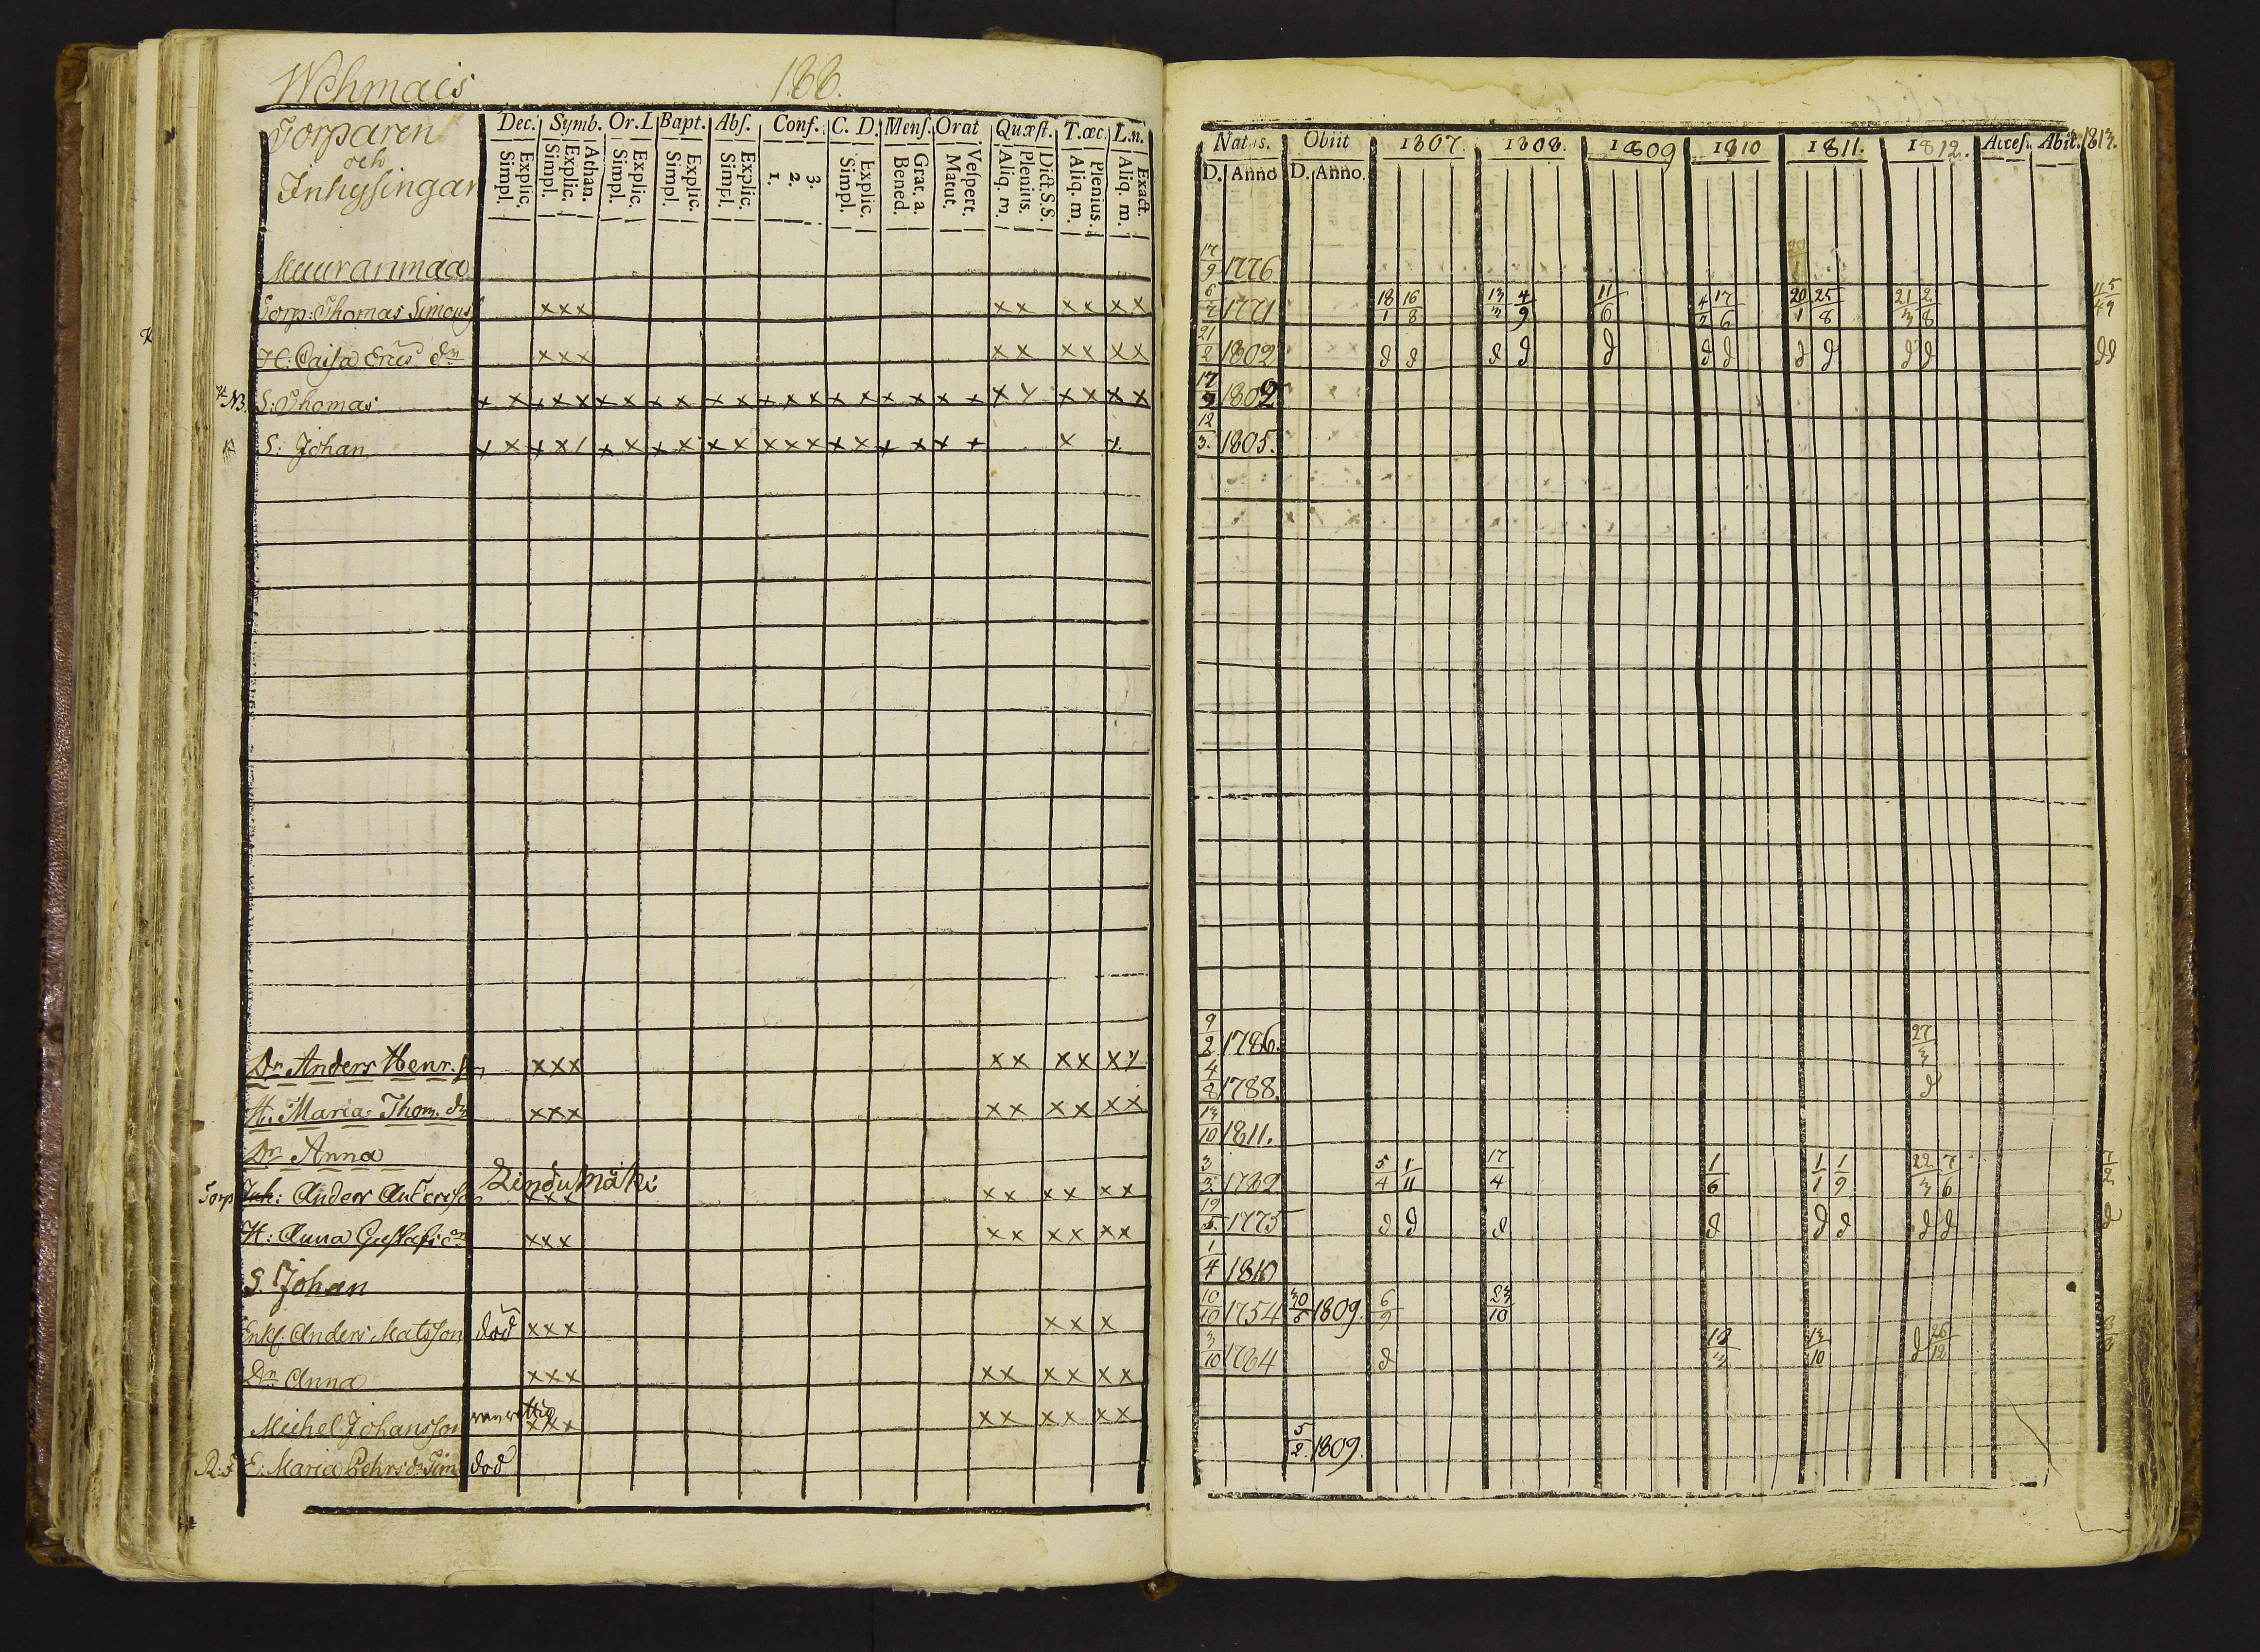 Wehmais 188.
Torparen
och
Inhysingar
Dec. Symb. Or. I. Bapt. Abs. Conf. C. D. Mens. Orat Quæst. T. œc. L. n.
Simpl. Explic. Simpl. Explic. Athan. Simpl. Explic. Simpl. Explic. Simpl. Explic. 1. 2. 3. Simpl. Explic. Bened. Grat. a. Matut. Vespert. Aliq. m. Plenius. Dict. S. S. Aliq. m. Plenius. Aliq. m. Exact.
Muuranmaa
Torp: Thomas Simons xxx xx xx xx
H: Caisa Erics dr xxx xx xx xx
NB. S: Thomas x x x x x x x x x x x x x x x x x x x x x x x x x x x
S: Johan x x x x / x x x x x x x x x x x x x x x x x
Dr Anders Henr. sn xxx xx xx xx
H. Maria Thom. dr xxx xx xx xx
Dr Anna
Torp Inh: Anders Andersson xxx xx xx xx
H: Anna Gustafs dr xxx xx xx xx
S. Johan
Enkl: Anders Matsson död xxx xxx
Dr Anna xxx xx xx xx
Michel Johansson xxx xx xx xx
E: Maria Pehrs dr död
Natus. Obiit 1807. 1808. 1809 1810 1811. 1812. Acces. Abit. 1813.
D. Anno D. Anno.
17/9 1776
6/2 1771 18/1 16/8 13/3 4/9 11/6 4/3 17/6 20/1 25/8 21/3 2/8
21/2 1802 d d d d d d d d d d d d d
1802
12/3. 1805.
9/2 1786. 27/3
4/8 1788. d
13/10 1811.
3/3 1782 5/4 1/11 17/4 1/6 1/1 1/9 22/3 7/6 7/2
19/5. 1775 d d d d d d d d d
1/4 1810
10/10 1754 30/5 1809. 6/9 23/10
3/10 1764 d 13/10 d 26/12
5/2 1809.